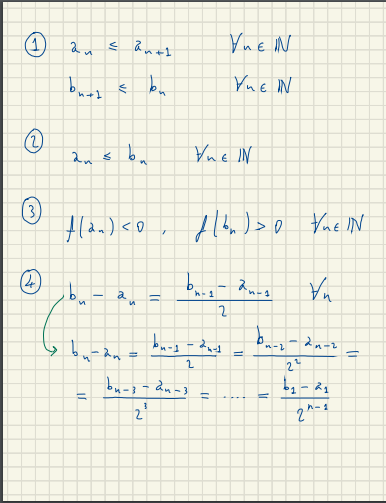 ① aₙ ≤ aₙ₊₁ ∀n ∈ ℕ
bₙ₊₁ ≤ bₙ ∀n ∈ ℕ
② aₙ ≤ bₙ ∀n ∈ ℕ
③ f(aₙ) < 0 , f(bₙ) > 0 ∀n ∈ ℕ
④ bₙ - aₙ = (bₙ₋₁ - aₙ₋₁)/2 ∀n
bₙ - aₙ = (bₙ₋₁ - aₙ₋₁)/2 = (bₙ₋₂ - aₙ₋₂)/2² =
= (bₙ₋₃ - aₙ₋₃)/2³ = .... = (b₁ - a₁)/2ⁿ⁻¹